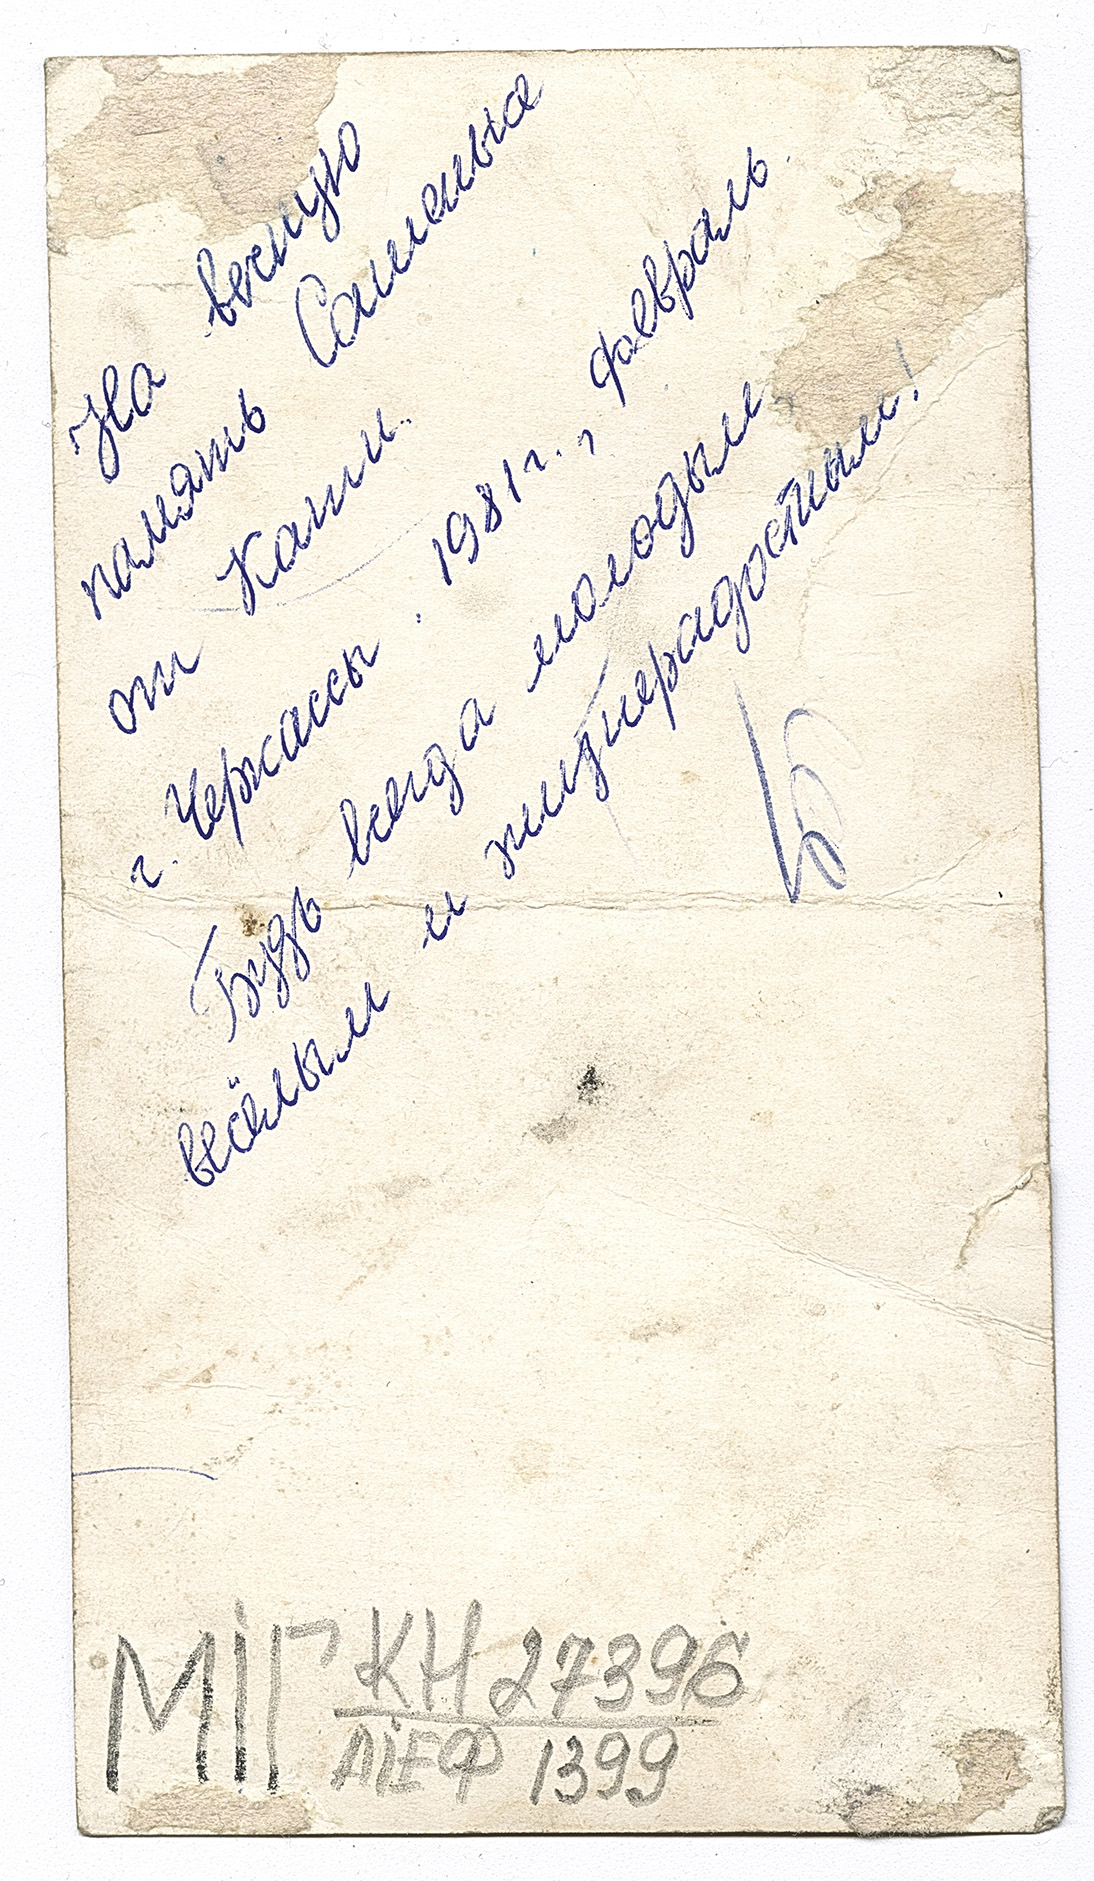 На вечную
память Сашенька
от Кати.
г. Черкассы. 1981г., февраль.
Будь всегда молодым,
весёлым и жизнерадостным!
МІГ КН 27396
АІЕФ 1399